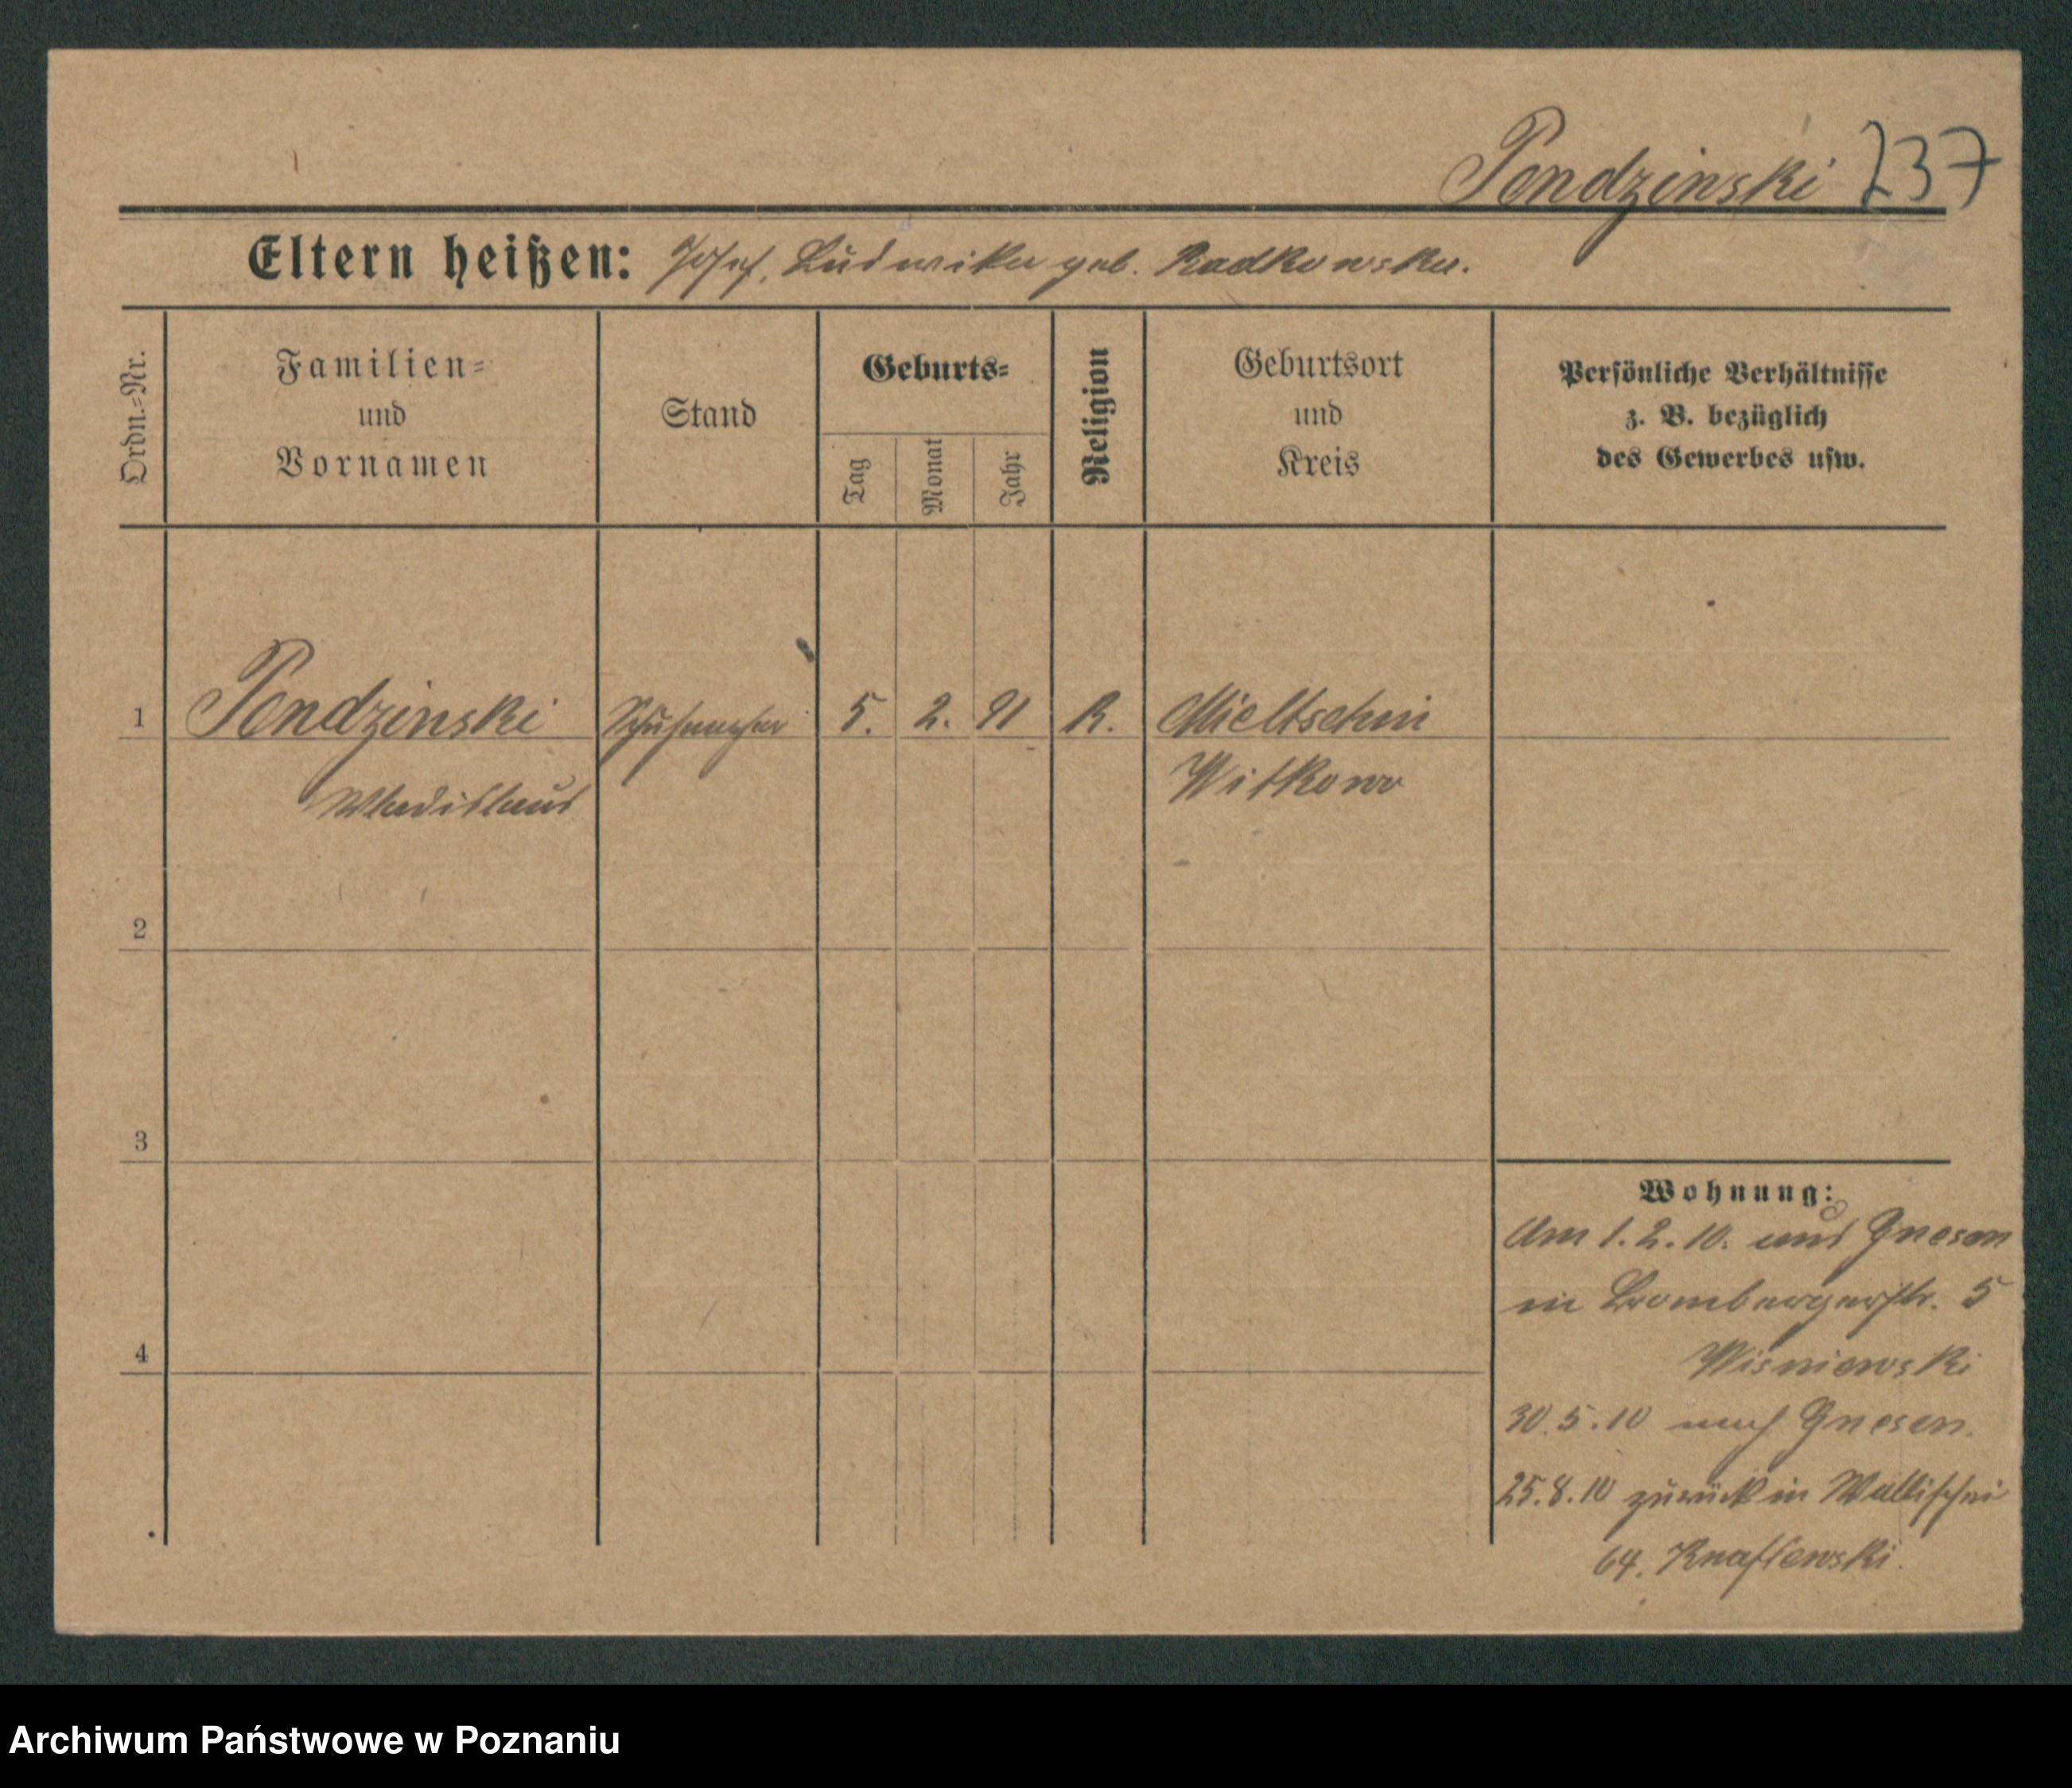 Pendzinski 237
Eltern heißen: Josef, Ludwika geb. Radkowska.
Ordn.-Nr.
Familien-
und
Vornamen
Stand
Geburts-
Tag
Monat
Jahr
Religion
Geburtsort
und
Kreis
Persönliche Verhältnisse
z. B. bezüglich
des Gewerbes usw.
1 Pendzinski Schuhmacher 5. 2. 91 R. Mieltschin
Wladislaus Witkowo
2
3
4
Wohnung:
Am 1.2.10. aus Gnesen
in Brombergerstr. 5
Wisniewski
30.5.10 nach Gnesen.
25.8.10 zurück in Wallischei
64. Knaflewski.
Archiwum Państwowe w Poznaniu